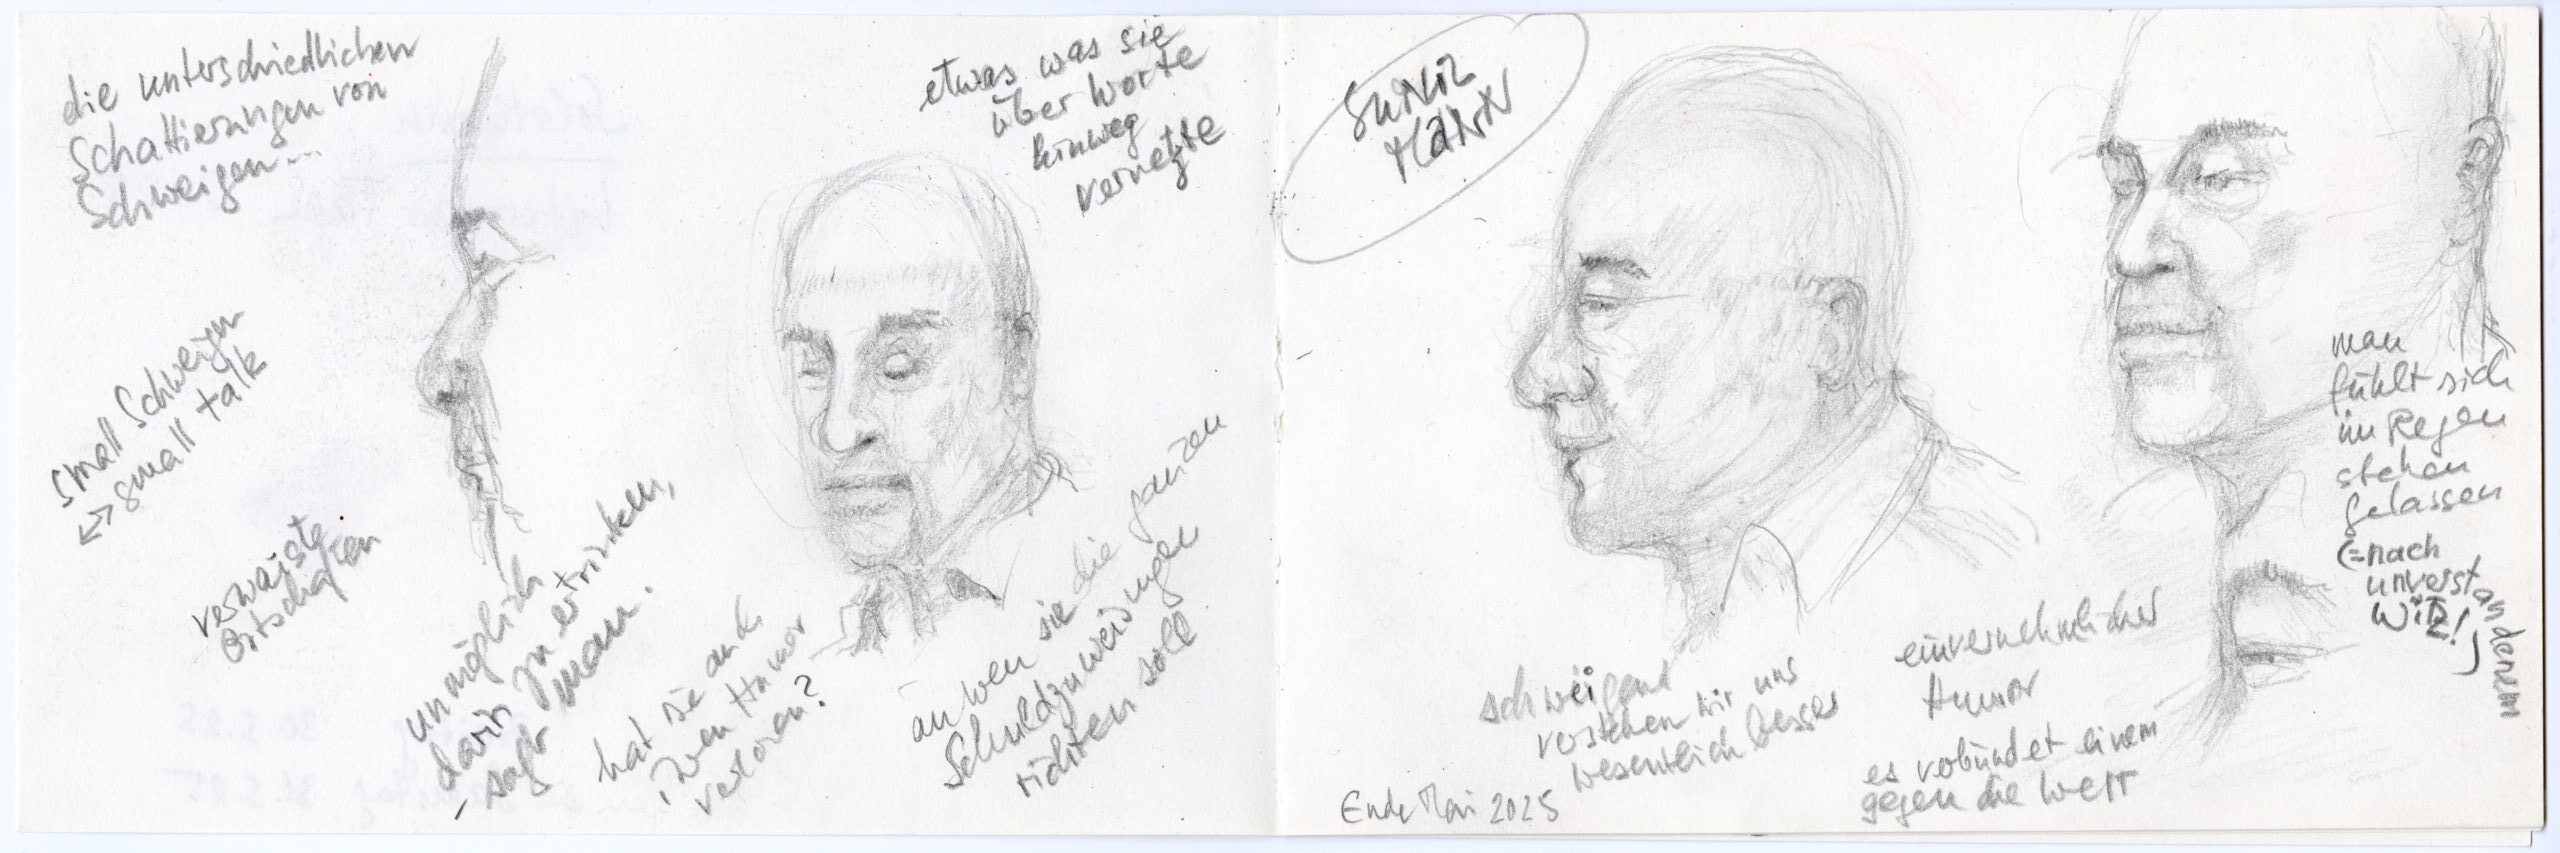 die unterschiedlichen
Schattierungen von
Schweigen...
small Schweigen
↔ small talk
verwaiste
Ortschaften
unmöglich
darin zu ertrinken,
- sagt man.
etwas was sie
über Worte
hinweg
vernetzte
hat sie auch
ihren Humor
verloren?
an wen sie die ganzen
Schuldzuweisungen
richten soll
Sunil
Mann
Ende Mai 2025
schweigend
verstehen wir uns
wesentlich besser
einvernehmlicher
Humor
es verbündet einem
gegen die Welt
man
fühlt sich
im Regen
stehen
gelassen
(=nach
unverstandenem
Witz!)
30.5.25
31.5.25